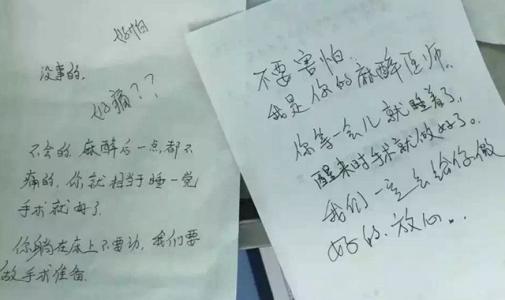 好怕
没事的.
好痛??
不会的.麻醉后一点都不
痛的.你就相当于睡一觉
手术就好了.
你躺在床上不要动,我们要
做手术准备.
不要害怕.
我是你的麻醉医师.
你等一会儿就睡着了,
醒来时手术就做好了。
我们一定会给你做
好的.放心...